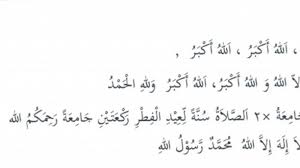 ، اَللهُ أَكْبَرُ ، اَللهُ أَكْبَرُ ,
اَللهُ وَ اللهُ أَكْبَرُ، اَللهُ أَكْبَرُ وَللهِ الْحَمْدُ
×٢ اَلصَّلاَةُ سُنَّةً لِعِيدِ الْفِطْرِ رَكْعَتَيْنِ جَامِعَةً رَحِمَكُمُ الله
إِلَهَ إِلاَّ اللهُ مُحَمَّدٌ رَسُوْلُ اللهِ